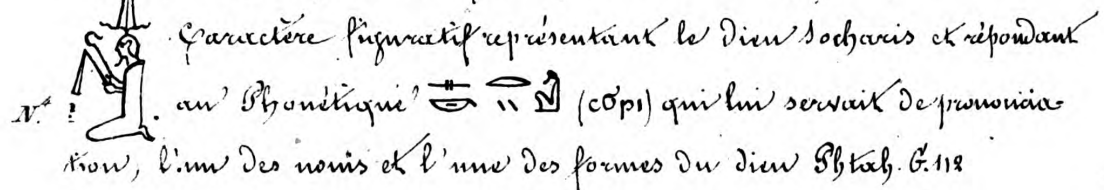 Caractère figuratif représentant le Dieu Socharis et répondant
N.º ? au Phonétique (ⲥϭⲣⲓ) qui lui servait de prononcia-
tion, l'un des noms et l'une des formes du dieu Phtah. G. 112